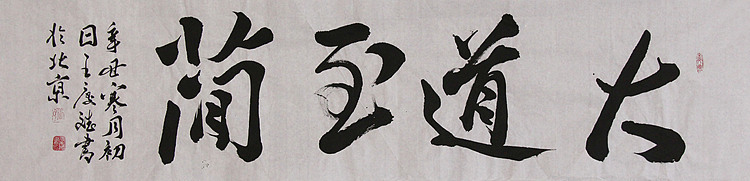 大道至簡
辛丑寒月初
日王書
於北京